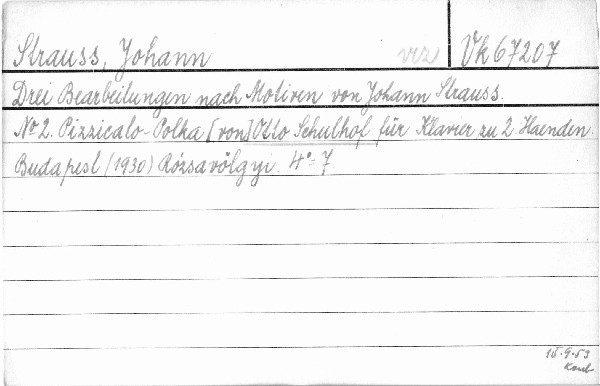 Strauss, Johann vrz Vk 67207
Drei Bearbeitungen nach Motiven von Johann Strauss.
No 2. Pizzicato-Polka [von] Otto Schulhof für Klavier zu 2 Haenden.
Budapest (1930) Rózsavölgyi. 4°= 7
15.9.53